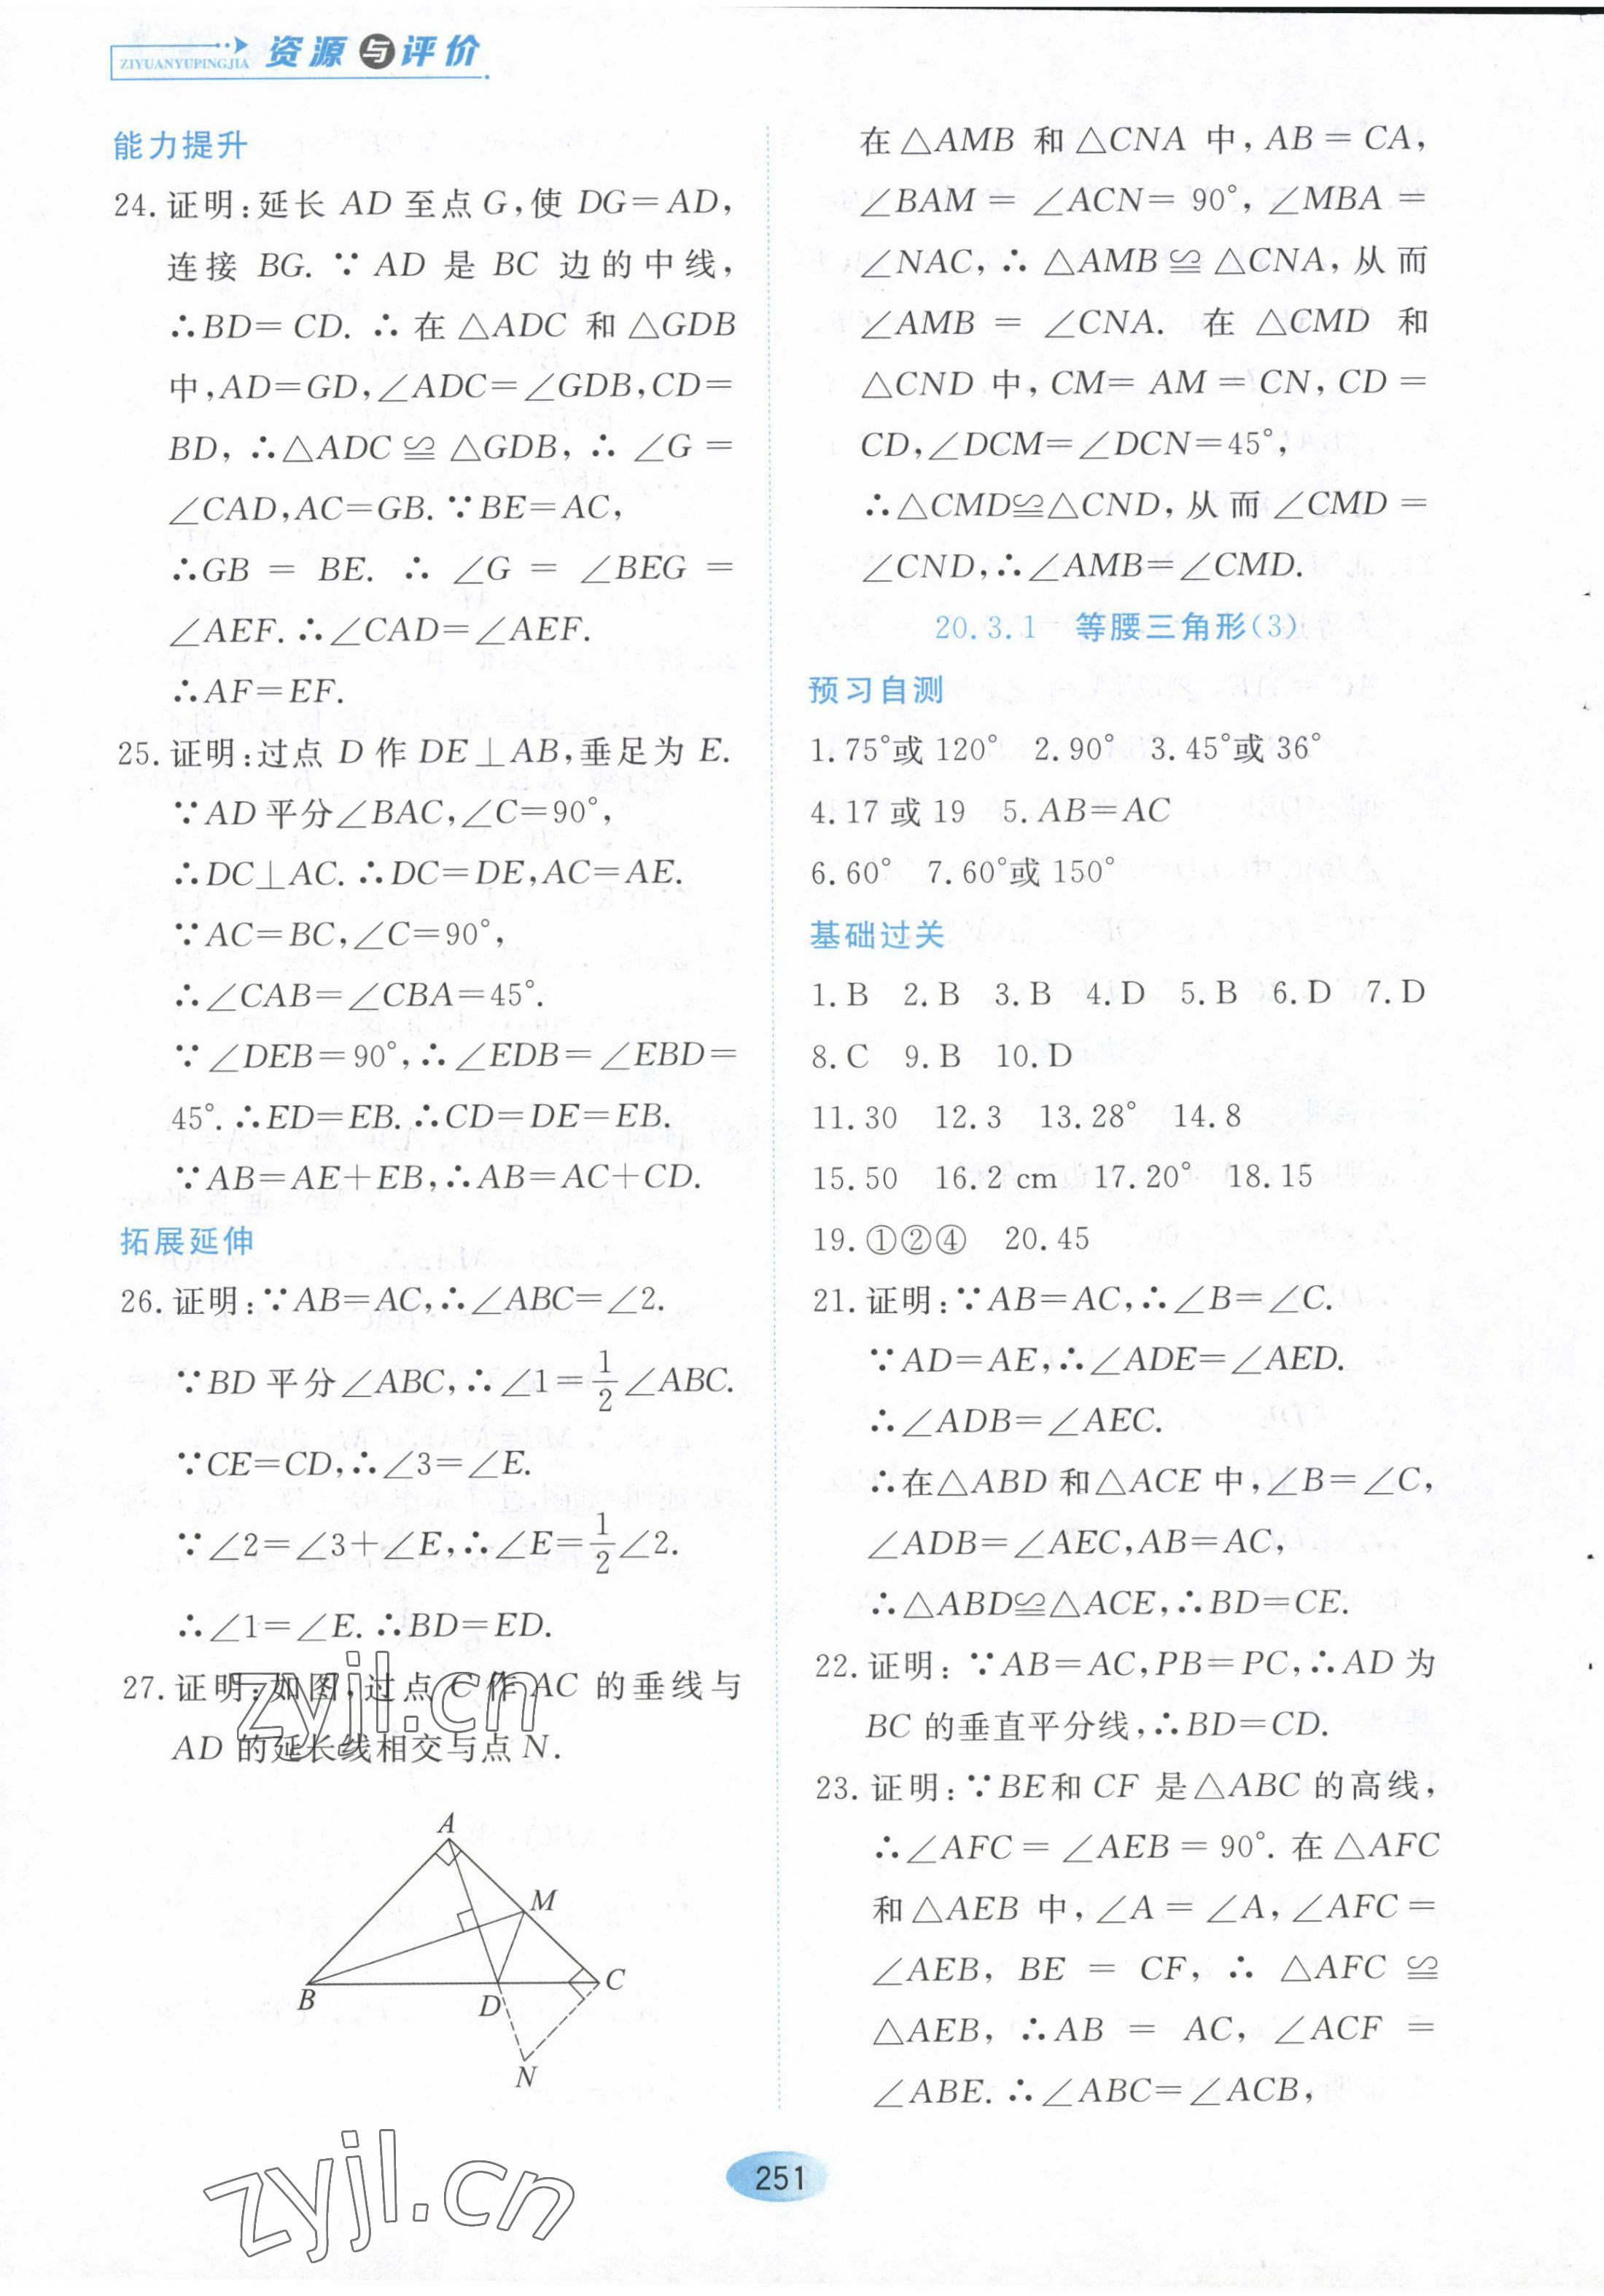 ZIYUANYUPINGJIA 资源与评价
能力提升
24. 证明:延长 AD 至点 G,使 DG=AD,
连接 BG. ∵ AD 是 BC 边的中线,
∴BD=CD. ∴在△ADC 和△GDB
中,AD=GD,∠ADC=∠GDB,CD=
BD, ∴△ADC≌△GDB, ∴∠G=
∠CAD,AC=GB. ∵BE=AC,
∴GB = BE. ∴ ∠G = ∠BEG =
∠AEF. ∴∠CAD=∠AEF.
∴AF=EF.
25. 证明:过点 D 作 DE⊥AB,垂足为 E.
∵AD 平分∠BAC,∠C=90°,
∴DC⊥AC. ∴DC=DE,AC=AE.
∵AC=BC,∠C=90°,
∴∠CAB=∠CBA=45°.
∵∠DEB=90°,∴∠EDB=∠EBD=
45°. ∴ED=EB. ∴CD=DE=EB.
∵AB=AE+EB,∴AB=AC+CD.
拓展延伸
26. 证明:∵AB=AC,∴∠ABC=∠2.
∵BD 平分∠ABC,∴∠1=1/2∠ABC.
∵CE=CD,∴∠3=∠E.
∵∠2=∠3+∠E,∴∠E=1/2∠2.
∴∠1=∠E. ∴BD=ED.
27. 证明:如图,过点 C 作 AC 的垂线与
AD 的延长线相交与点 N.
zyjl.cn
A
M
B
D
C
N
zyjl.cn
在△AMB 和△CNA 中,AB=CA,
∠BAM = ∠ACN= 90°, ∠MBA =
∠NAC,∴ △AMB≌△CNA,从而
∠AMB = ∠CNA. 在 △CMD 和
△CND 中,CM= AM = CN, CD =
CD,∠DCM=∠DCN=45°,
∴△CMD≌△CND,从而∠CMD=
∠CND,∴∠AMB=∠CMD.
20.3.1 等腰三角形(3)
预习自测
1. 75°或 120° 2. 90° 3. 45°或 36°
4. 17 或 19 5. AB=AC
6. 60° 7. 60°或 150°
基础过关
1. B 2. B 3. B 4. D 5. B 6. D 7. D
8. C 9. B 10. D
11. 30 12. 3 13. 28° 14. 8
15. 50 16. 2 cm 17. 20° 18. 15
19. ①②④ 20. 45
21. 证明:∵AB=AC,∴∠B=∠C.
∵AD=AE,∴∠ADE=∠AED.
∴∠ADB=∠AEC.
∴在△ABD 和△ACE 中,∠B=∠C,
∠ADB=∠AEC,AB=AC,
∴△ABD≌△ACE,∴BD=CE.
22. 证明: ∵AB=AC,PB=PC,∴AD 为
BC 的垂直平分线,∴BD=CD.
23. 证明:∵BE和 CF 是△ABC 的高线,
∴∠AFC=∠AEB=90°. 在△AFC
和△AEB 中,∠A=∠A,∠AFC=
∠AEB, BE = CF, ∴ △AFC ≌
△AEB, ∴AB = AC, ∠ACF =
∠ABE. ∴∠ABC=∠ACB,
251